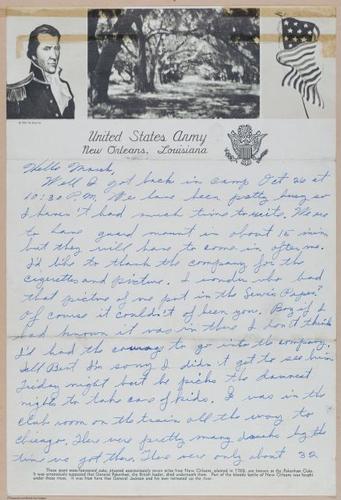 United States Army
New Orleans, Louisiana
Hello Marsh,
Well I got back in camp Oct 26 at
10:30 P.M. We have been pretty busy so
I haven't had much time to write. We are
to have guard mount in about 15 min
but they will have to come in after me.
I'd like to thank the company for the
cigarettes and picture. I wonder who had
that picture of me put in the Paper?
Of course it couldn't of been you. Boy if I
had known it was in there I don't think
I'd had the courage to go into the company.
Tell Bert I'm sorry I didn't get to see him
Friday night but he picks the damnest
nights to take care of kids. I was in the
club room on the train all the way to
Chicago. There were pretty many drunks by the
time we got there. There were only about 32
These moss-festooned oaks, situated approximately seven miles from New Orleans, planted in 1783, are known as the Pakenham Oaks.
It was erroneously supposed that General Pakenham, the British leader, died underneath them. Part of the bloody battle of New Orleans was fought
under these trees. It was from here that General Jackson and his men retreated up the river.